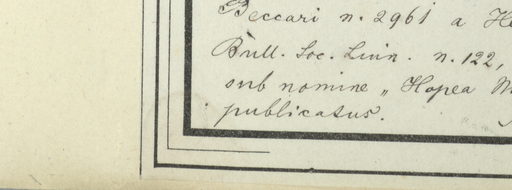 Beccari n. 2961 a
Bull. Soc. Linn. n. 122,
sub nomine „ Hopea
publicatus.